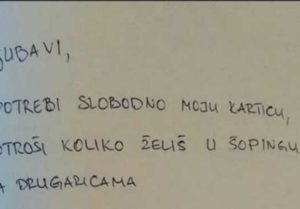 JUBAVI,
POTREBI SLOBODNO MOJU KARTICU,
OTROŠI KOLIKO ŽELIŠ U ŠOPINGU
A DRUGARICAMA